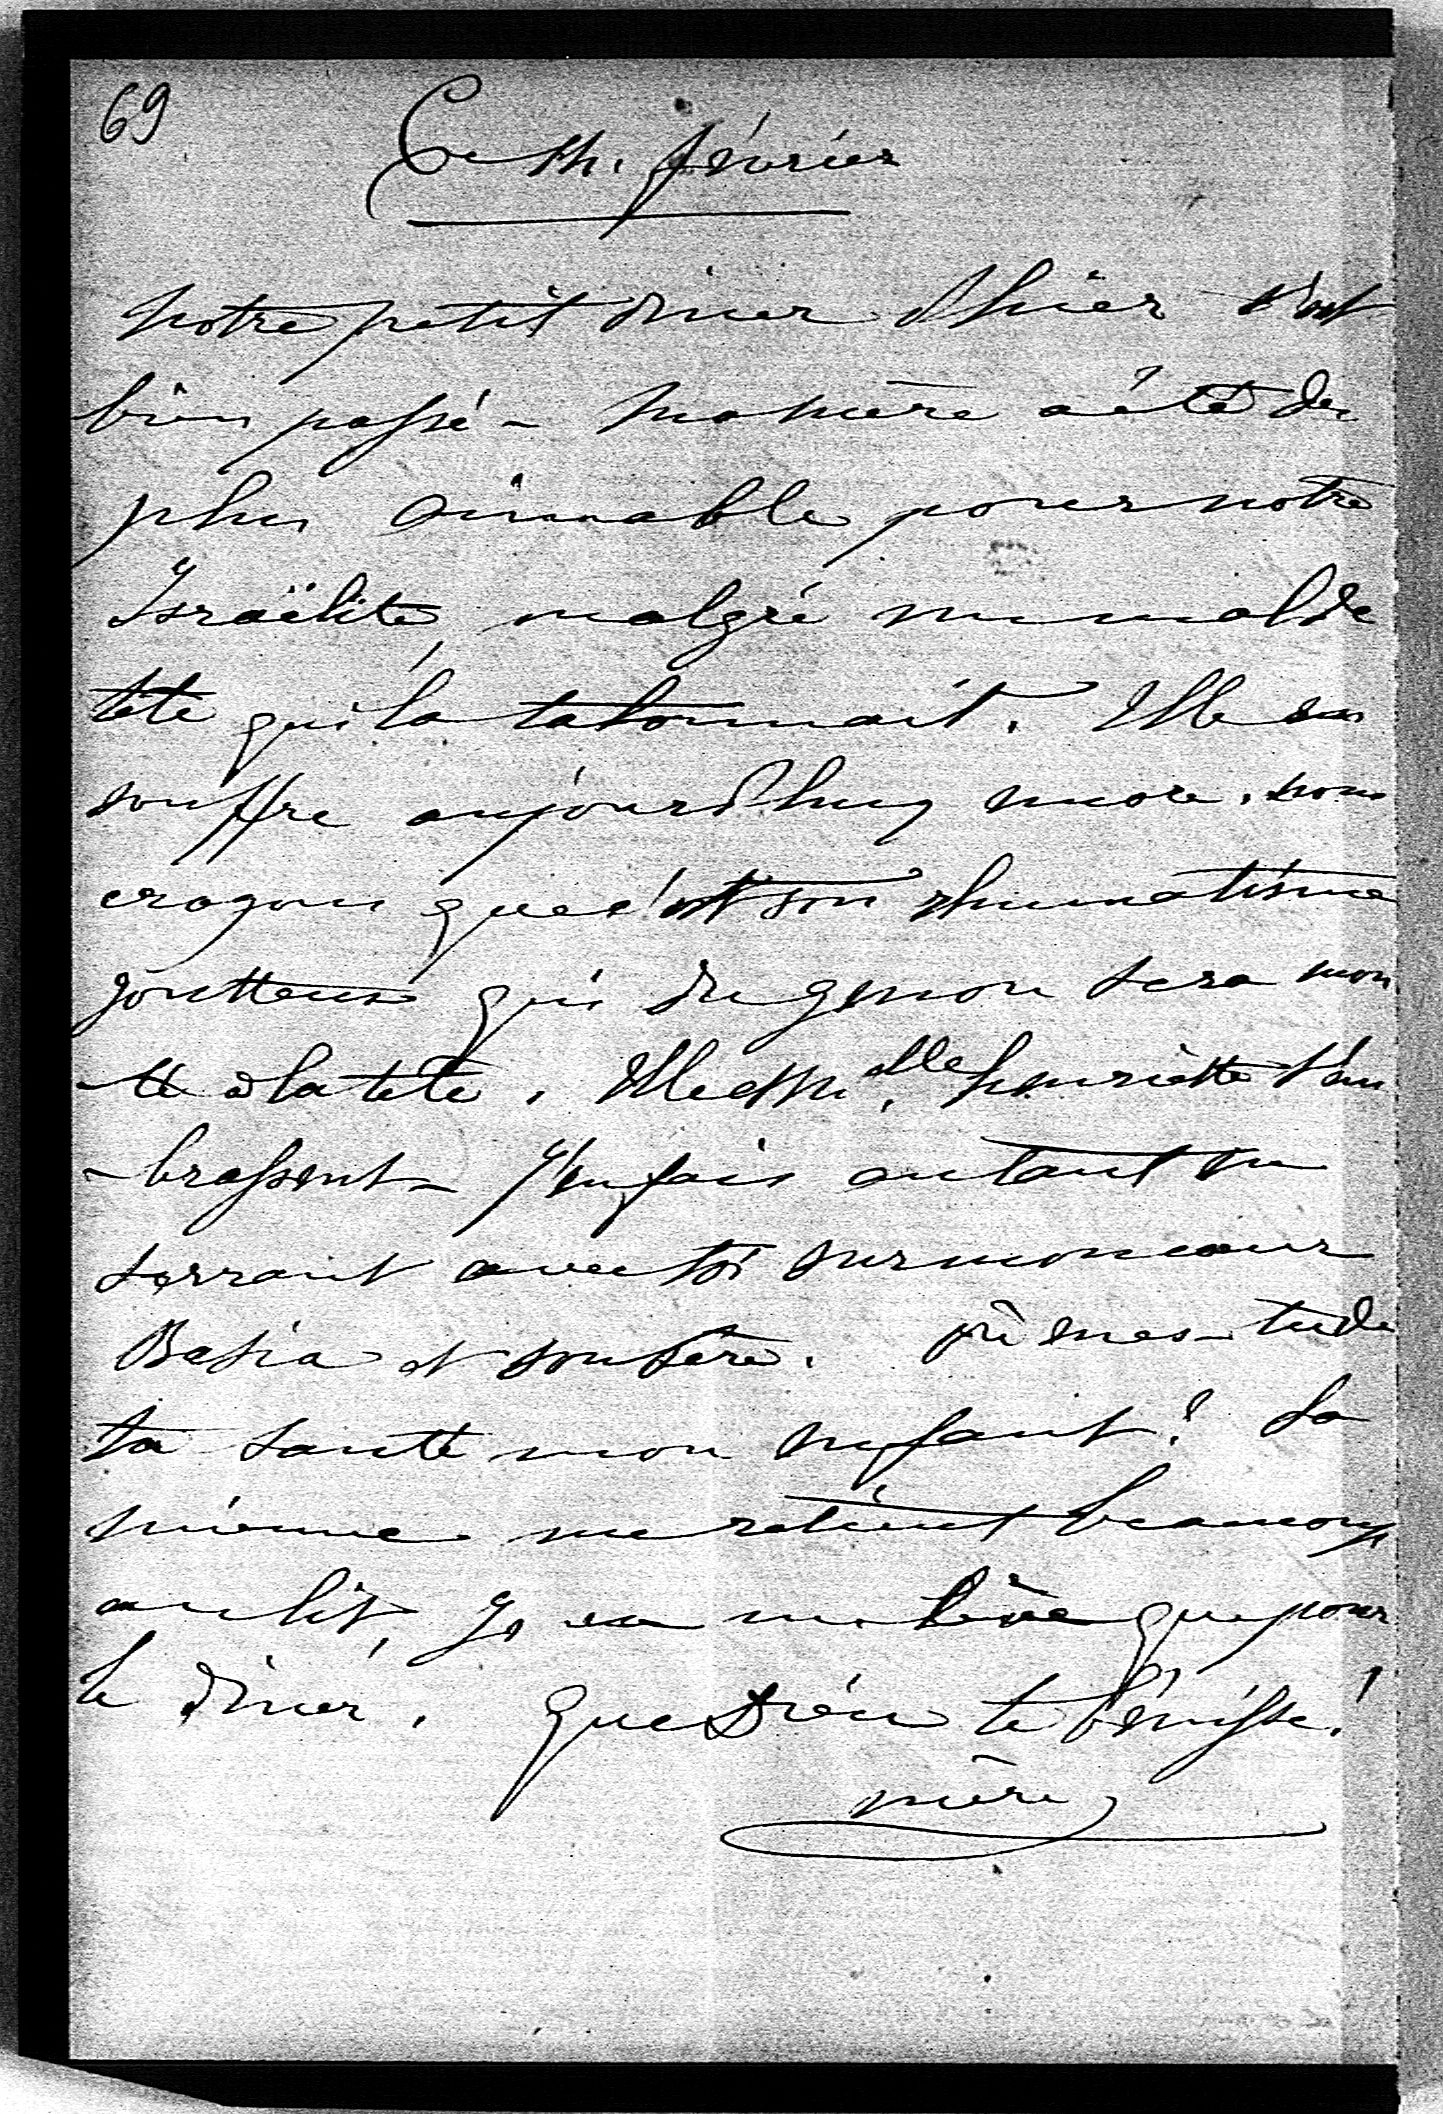 69
Ce th. février
Notre petit diner d'hier s'est
bien passé - Ma mère a été des
plus aimable pour notre
Israëlite, malgré un mal de
tète qui la talonnait. Elle en
souffre aujourd'huy encore. nous
croyons que c'est son rhumatisme
goutteux qui du genou sera mon
-té à la tete. Elle et M.elle henriette t'em
-brassent - J'en fais autant en
serrant avec toi sur mon cœur
Basia et son père. où en es-tu de
ta santé mon enfant? La
mienne me retient beaucoup
au lit, je ne me lève que pour
le diner. Que Dieu te bénisse!
mère